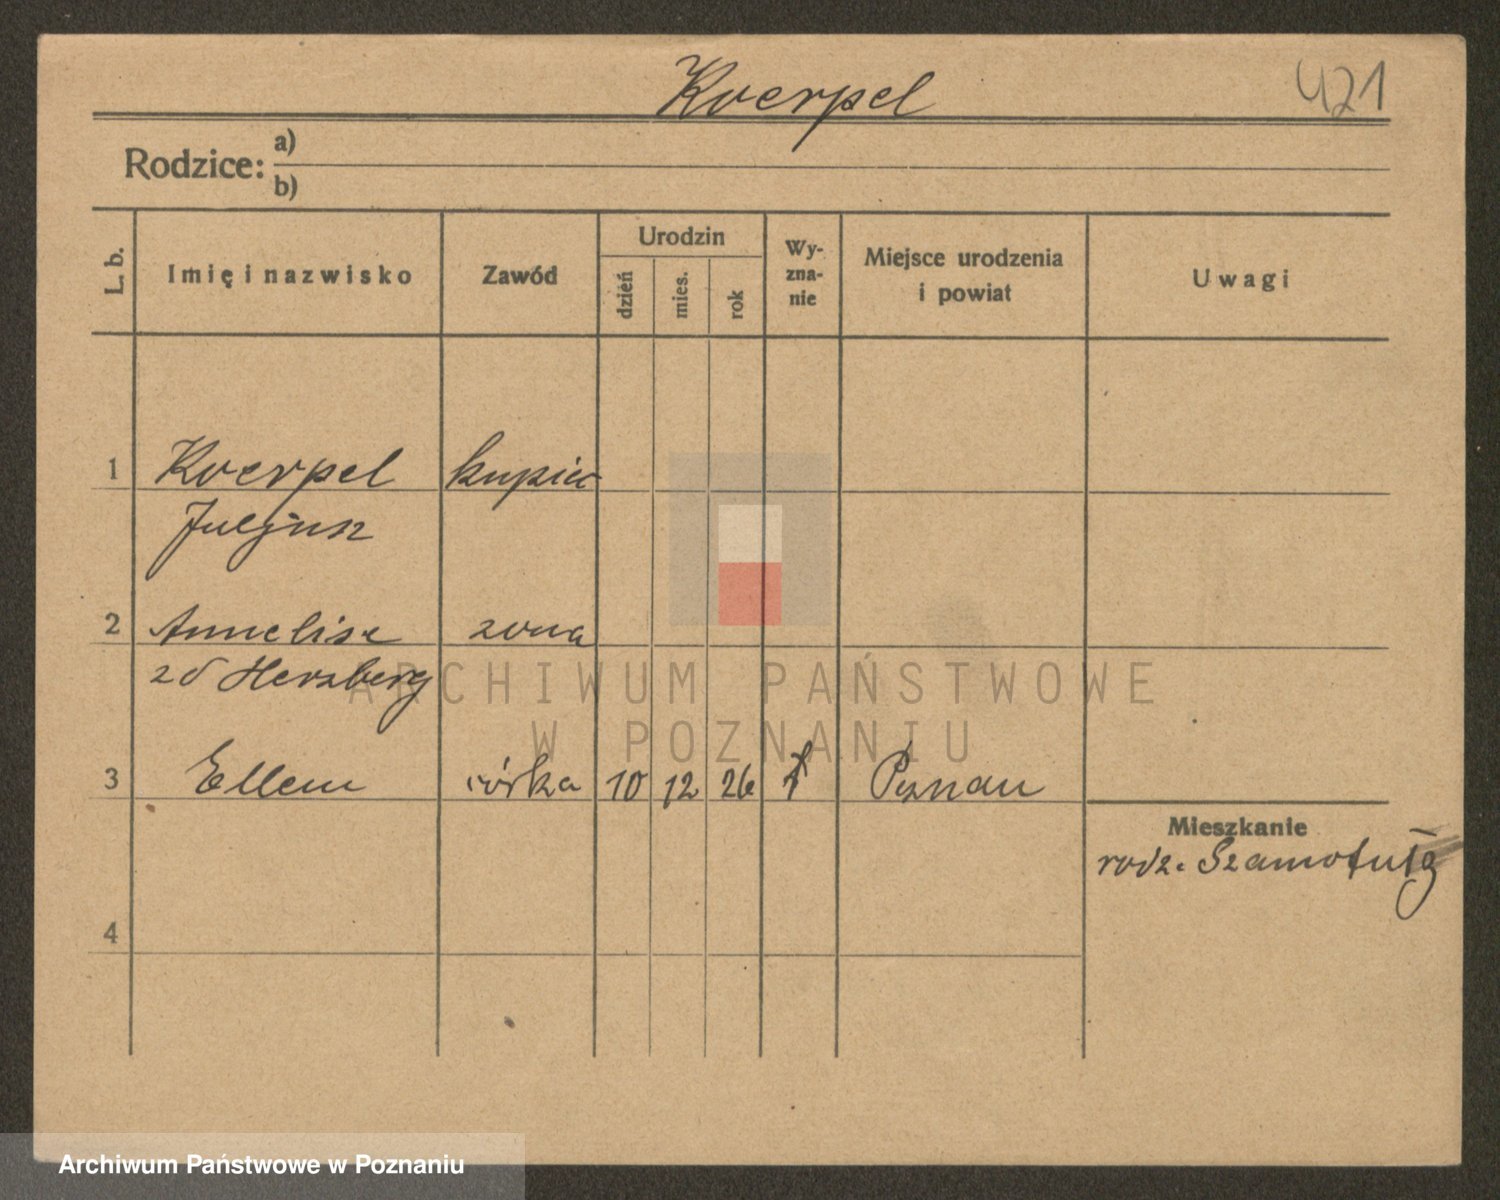 Koerpel 421
Rodzice: a)
b)
L. b.
Imię i nazwisko
Zawód
Urodzin
dzień
mies.
rok
Wy-
zna-
nie
Miejsce urodzenia
i powiat
Uwagi
1 Koerpel kupiec
Juljusz
2 Annelise zona
zd Herzberg
3 Ellen córka 10 12 26 Poznan
Mieszkanie
rodz. Szamotuły
4
ARCHIWUM PAŃSTWOWE
W POZNANIU
Archiwum Państwowe w Poznaniu